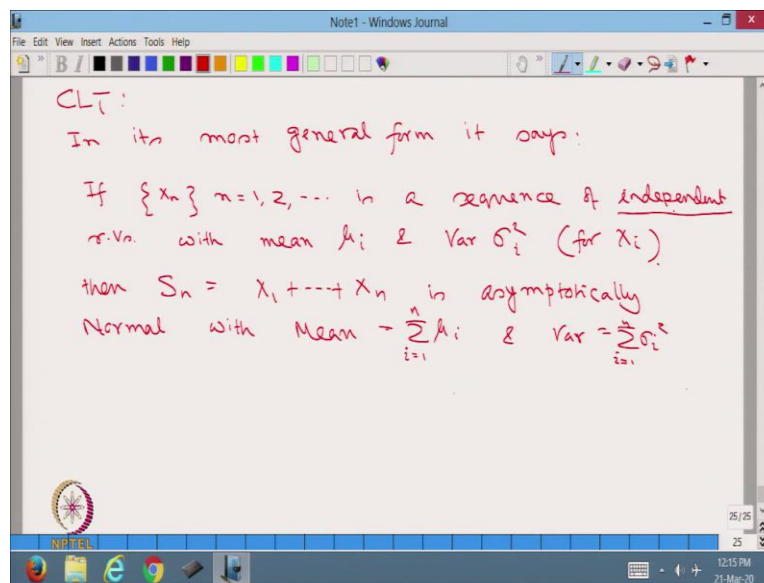 Note1 - Windows Journal
File Edit View Insert Actions Tools Help
B I
CLT :
In its most general form it says :
If { Xn } n = 1, 2, --- is a sequence of independent
r.vs. with mean μi & Var σi² (for Xi)
then Sn = X1 + --- + Xn is asymptotically
Normal with Mean = ∑ i=1 n μi & Var = ∑ i=1 n σi²
NPTEL
25/25
25
12:15 PM
21-Mar-20